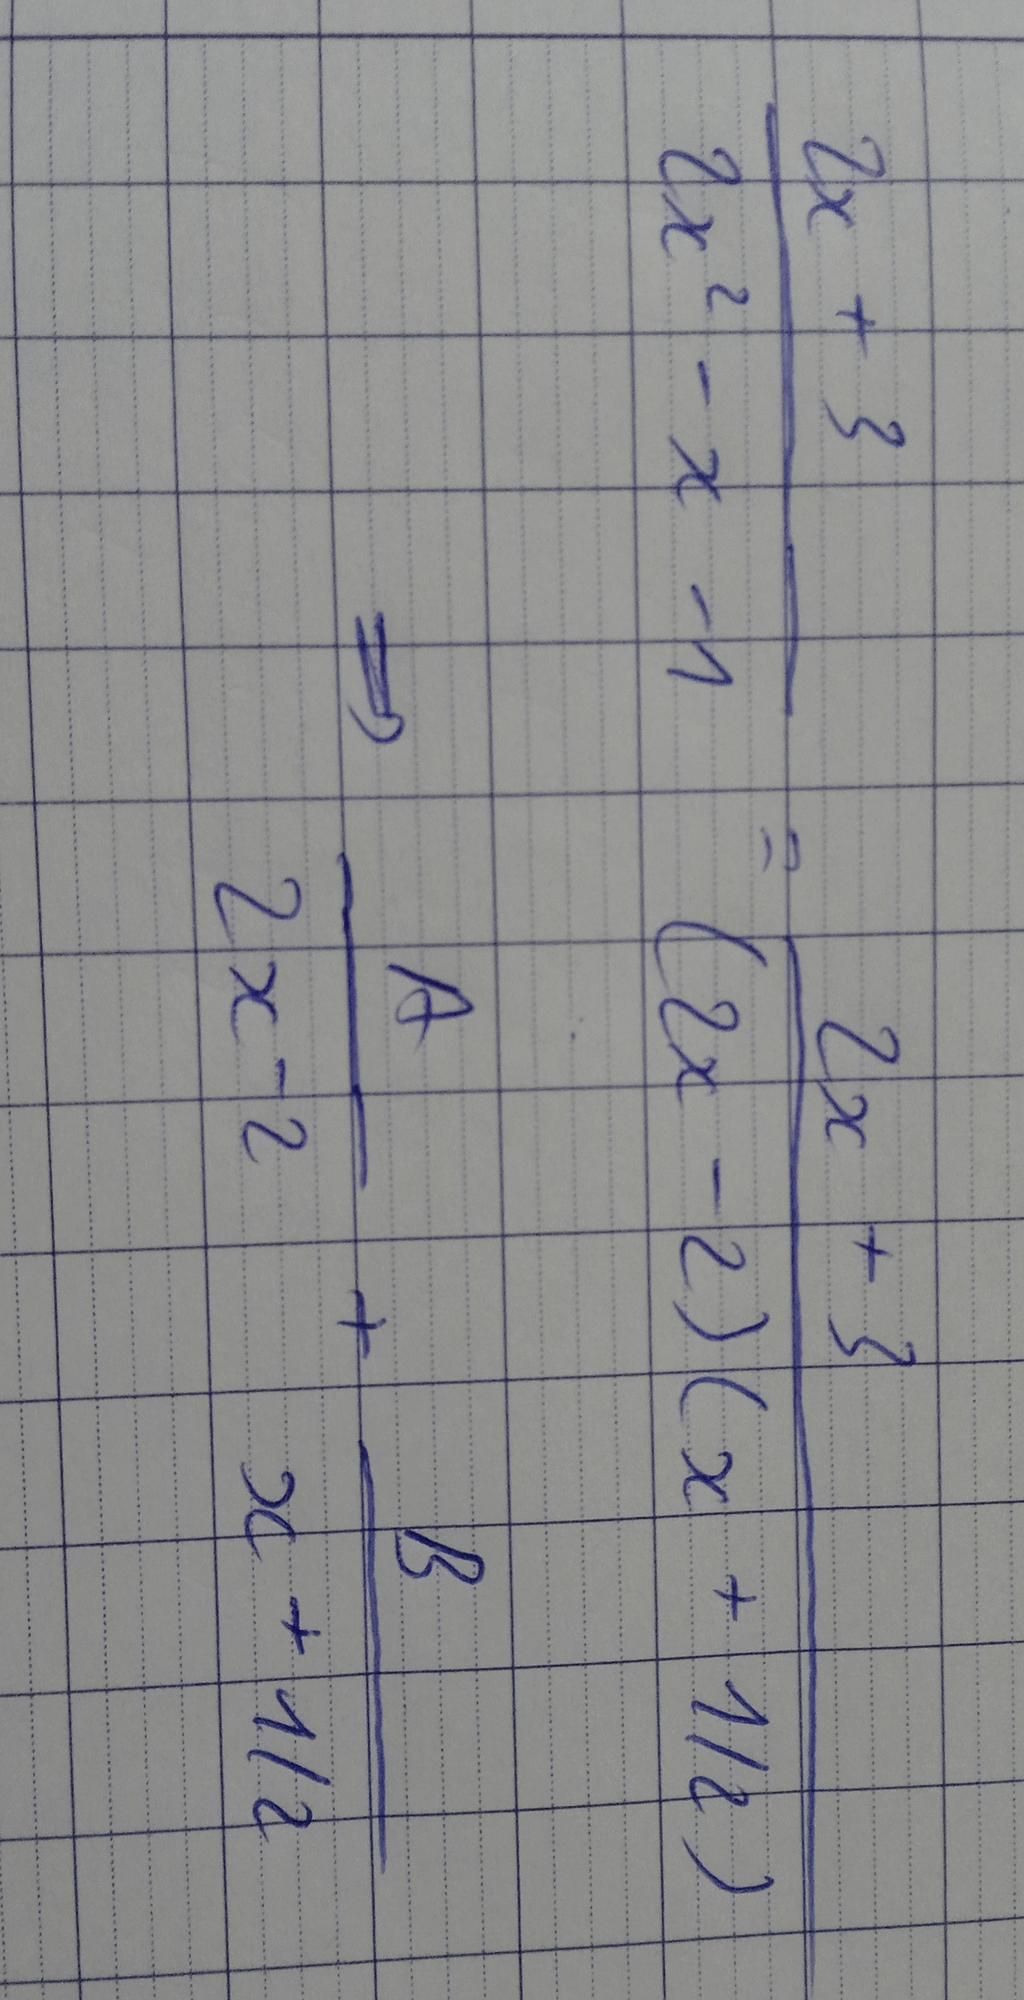 2x + 3 / 2x² - x - 1 = 2x + 3 / (2x - 2)(x + 1/2)
⇒ A / 2x - 2 + B / x + 1/2